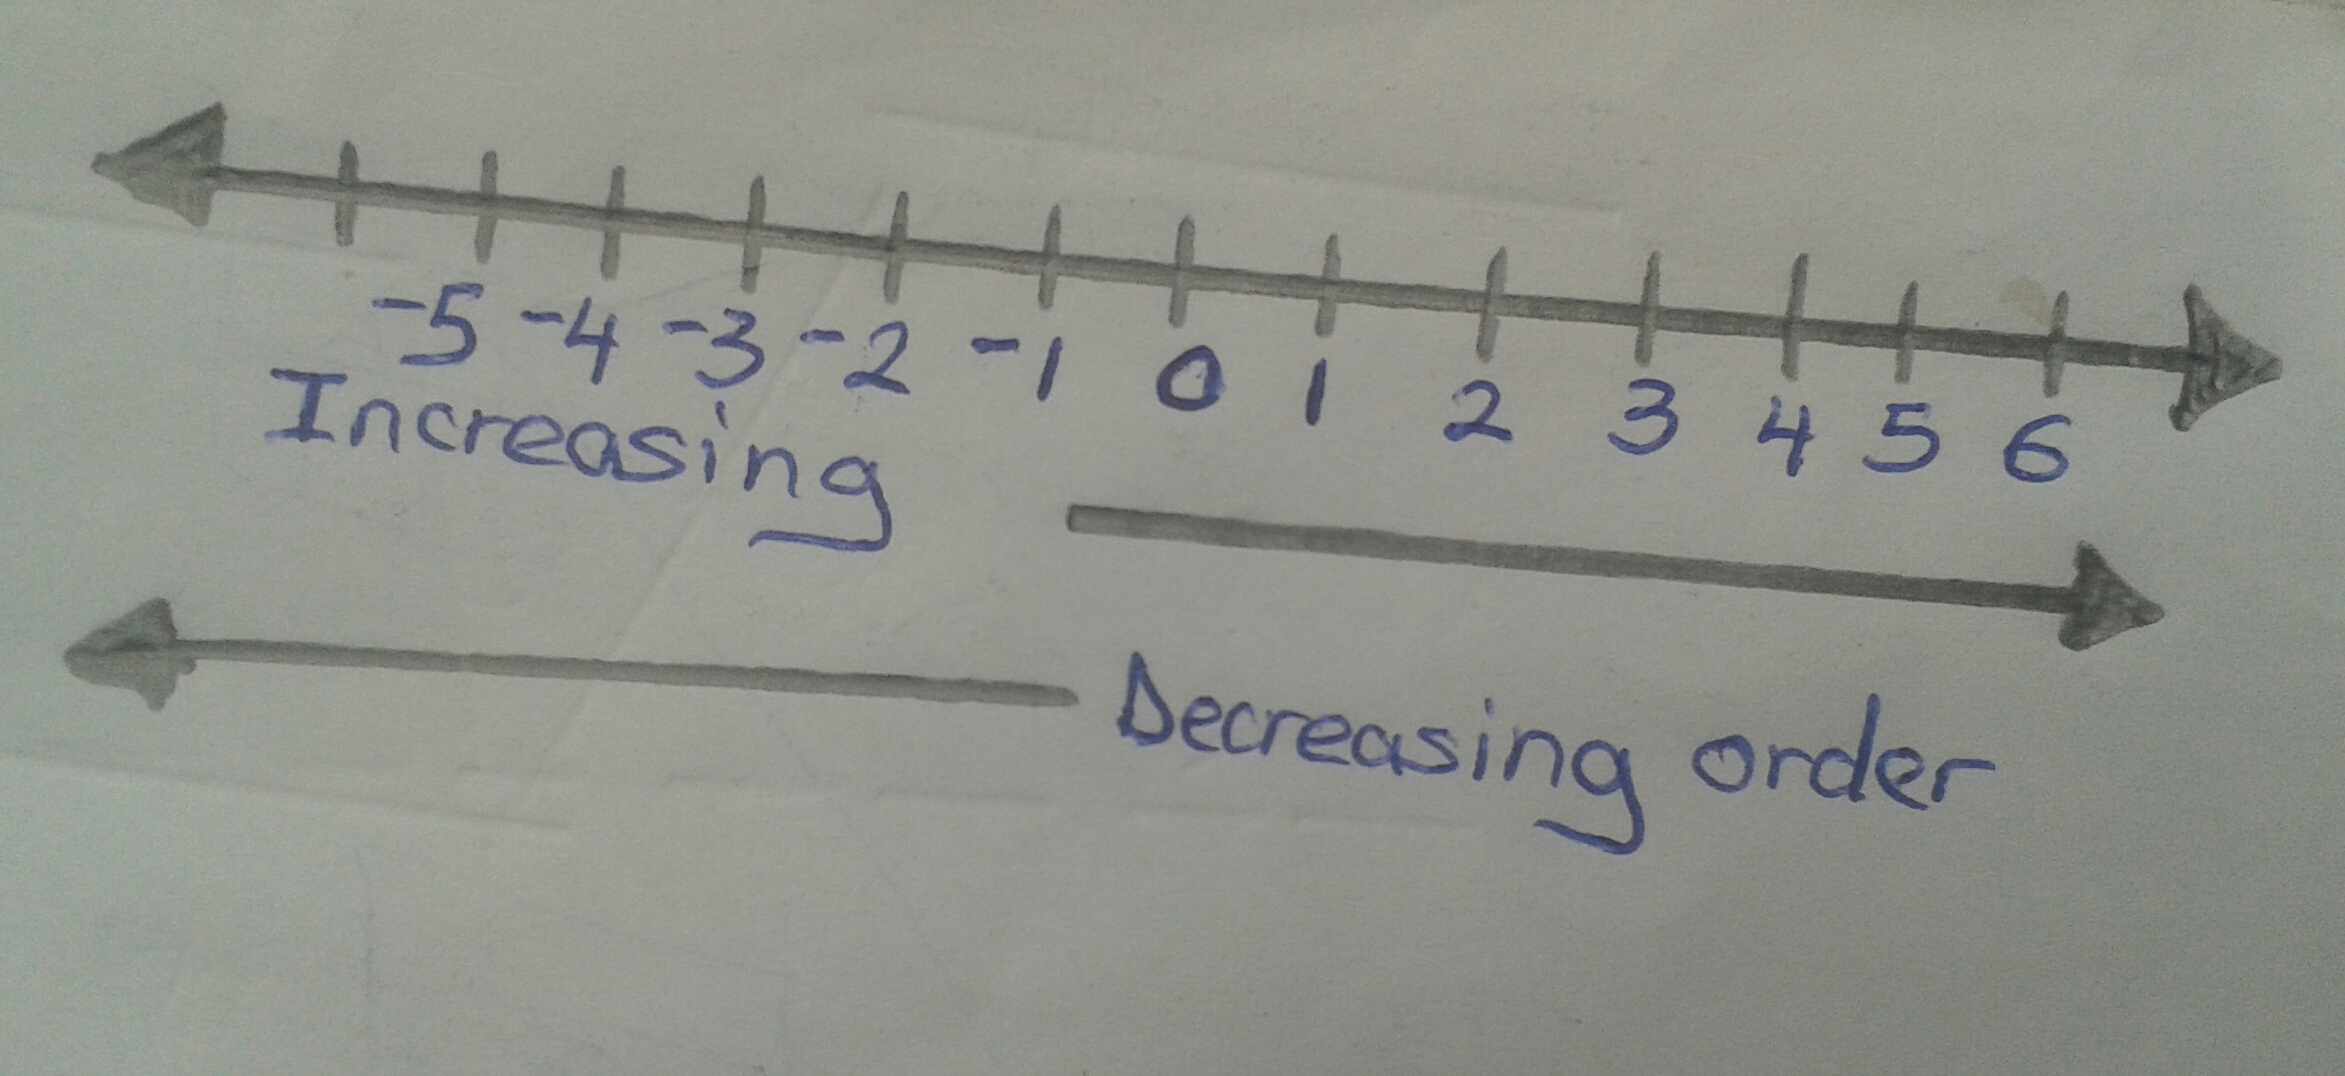 -5 -4 -3 -2 -1 0 1 2 3 4 5 6
Increasing
Decreasing order